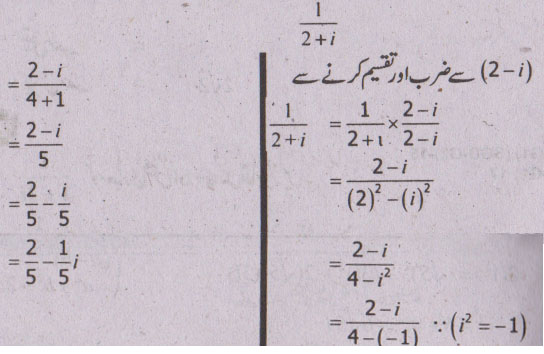 1/(2+i)
(2−i) سے ضرب اور تقسیم کرنے سے
1/(2+i) = 1/(2+i) × (2−i)/(2−i)
= (2−i)/((2)² −(i)²)
= (2−i)/(4−i²)
= (2−i)/(4−(−1)) ∵(i² = −1)
= (2−i)/(4+1)
= (2−i)/5
= 2/5 − i/5
= 2/5 − 1/5 i